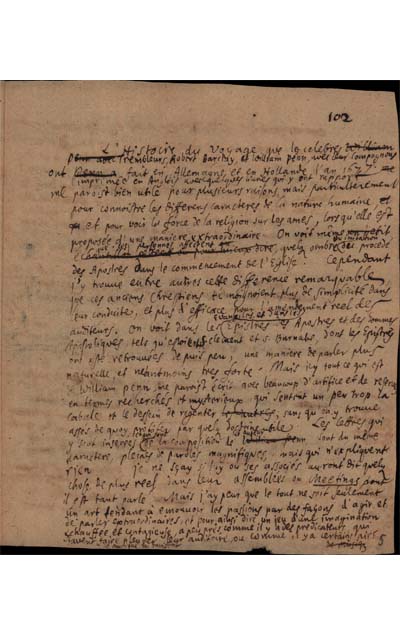 102
L'Histoire du Voyage que le celebre William
Trembleurs, Robert Barclay, et William Penn, avec leur compagnons
ont Penn a fait en Allemagne et en Hollande l'an 1677
imprimée en Anglois avec quelques qui y ont rapport
me paroist bien utile pour plusieurs raisons, mais particulierement
pour connoistre les differens caracteres de la nature humaine, et
et pour voir la force de la religion sur les ames, lorsqu'elle est
proposée d'une maniere extraordinaire. On voit même un petit
quelq ombre du procedé
des Apostres dans le commencement de l'Eglise. Cependant
j'y trouve entre autres cette difference remarquable
que ces anciens Chrestiens temoignoient plus de simplicité dans
leur conduite, et plus d'efficace pour l'amendement reel des
auditeurs. On voit dans les Epistres des Apostres et des hommes
Apostoliques tels qu'estoient S. Clement et S. Barnabe, dont les Epistres
ont esté retrouvées de puis peu, une maniere de parler plus
naturelle et neantmoins tres forte. Mais icy tout ce qui est
William penn, me paroist ecrit avec beaucoup d'artifice et de
en termes recherchés et mysterieux qui sentent un peu trop la
cabale et le dessein de regenter les autres, sans qu'on y trouve
assez de quoy profiter par quelq doctrine utile. Les lettres qui
y sont inserées de la composition de William penn sont du même
caractere, pleines de paroles magnifiques mais qui n'expliquent
rien. Je ne sçay si luy ou ses associés auront dit quelq
chose de plus reel dans leur assemblées ou Meetings dont
il est tant parlé. Mais j'ay peur que le tout ne soit seulement
un art tendant à emouvoir les passions par des façons d'agir et
de parler extraordinaires, et pour ainsi dire un jeu d'une imagination
echauffée et contagieuse, à peu prés comme il y a des predicateurs qui
sçavent faire pleurer leur auditoire, ou comme il y a certains airs
5